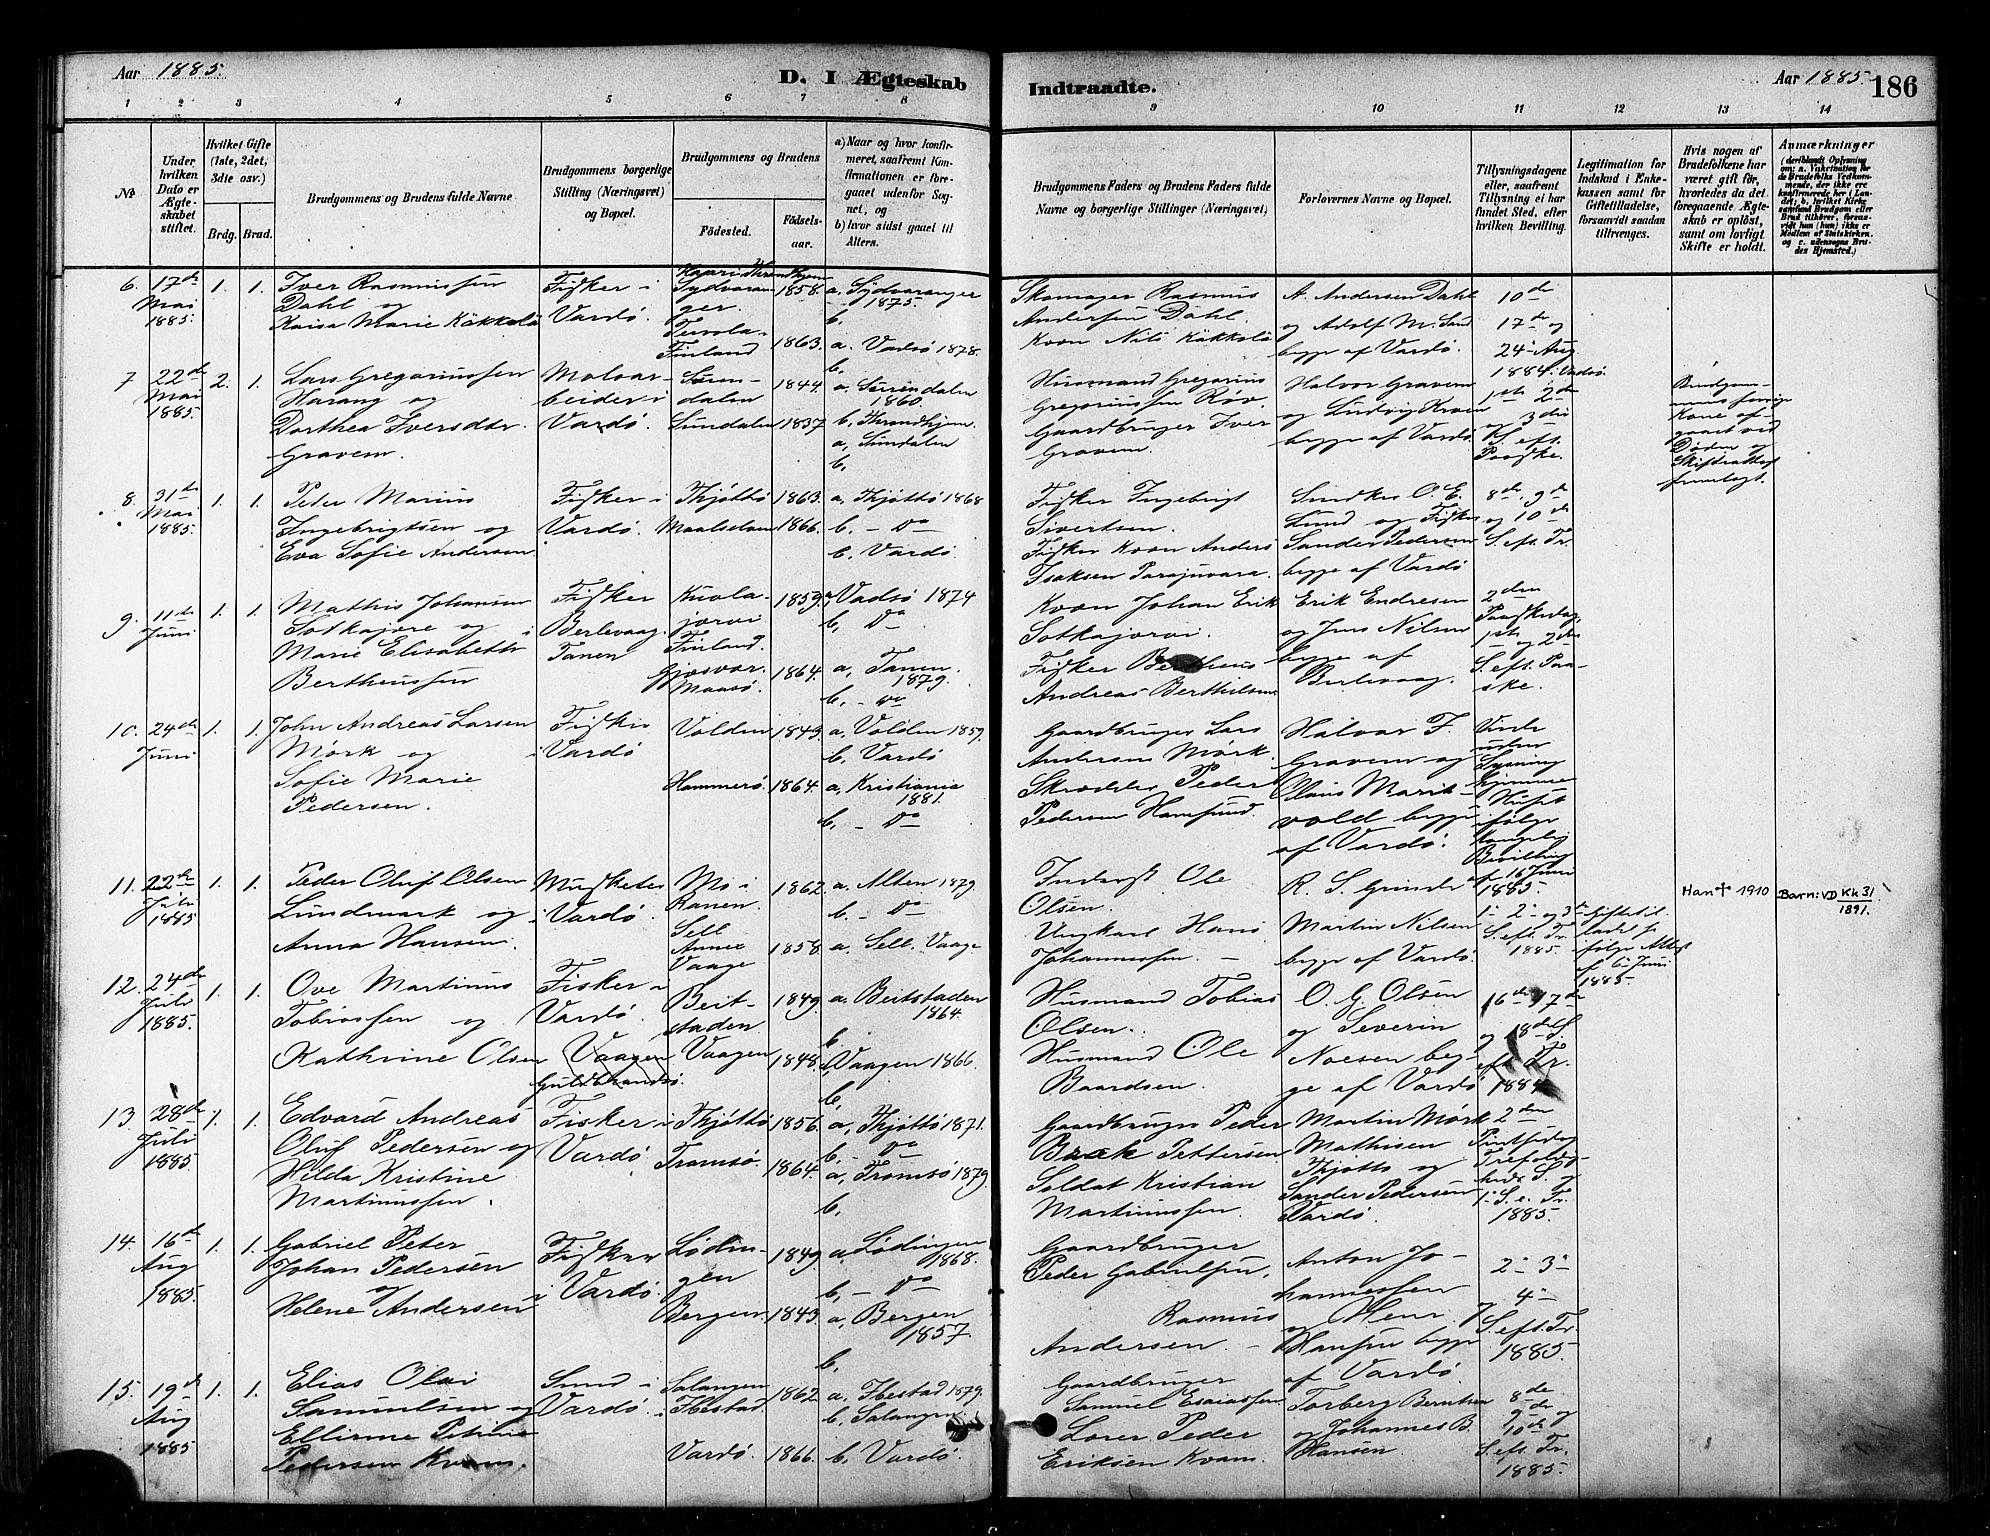 Aar 1885.
D. I Ægteskab
Indtraadte.
Aar 1885.
186
1 2 3 4 5 6 7 8 9 10 11 12 13 14
№
Under hvilken Dato er Ægteskabet stiftet.
Hvilket Gifte (1ste, 2det, 3dte osv.)
Brdg. Brud.
Brudgommens og Brudens fulde Navne
Brudgommens borgerlige Stilling (Næringsvei) og Bopæl.
Brudgommens og Brudens
Födested.
Födselsaar.
a) Naar og hvor konfirmeret, saafremt Konfirmationen er foregaaet udenfor Sognet, og
b) hvor sidst gaaet til Alters.
Brudgommens Faders og Brudens Faders fulde Navne og borgerlige Stillinger (Næringsvei)
Forlovernes Navne og Bopæl.
Tillysningsdagene eller, saafremt Tillysning ei har fundet Sted, efter hvilken Bevilling.
Legitimation for Indskud i Enkekassen samt for Giftetilladelse, forsaavidt saadan tiltrænges.
Hvis nogen af Brudefolkene har været gift før, hvorledes da det foregaaende Ægteskab er opløst, samt om lovligt Skifte er holdt.
Anmærkninger
6. 17de Mai 1885. 1. 1.
Iver Rasmussen
Dahl og
Kaisa Marie Kökkelö
Fisker i
Vardö.
Sydvaranger.
Tervola
Finland
1858.
1863.
a. Sydvaranger
1875
b.
a. Vadsö 1878.
b.
Skomager Rasmus
Andersen Dahl.
Kvæn Nils Kökkelö
A. Andersen Dahl
og Adolf M. Sand
begge af Vardö.
10de
17de og
24 Aug
1884. Vadsö
7 22de Mai 1885. 2. 1.
Lars Gregoriussen
Harang og
Dorthea Iversdtr.
Gravem.
Moloarbeider i
Vardö.
Surendalen
Sundalen
1844.
1837
a. Surendalen
1860.
b. Throndhjem.
a, Sundalen
b.
Husmand Gregorius
Gregoriussen Röv.
Gaardbruger Iver
Gravem.
Halvor Gravem
og Ludvig Kroen
begge af Vardö.
1ste 2de
og 3die
S. eft.
Paaske.
Brudgommens forrige
Kone afgaaet ved
Döden og
Skifteattest
fremlagt.
8. 31te Mai 1885. 1. 1.
Peter Marius
Ingebrigtsen og
Eva Sofie Andersen
Fisker i
Vardö.
Thjöttö
Maalselven
1863.
1866.
a, Thjöttö 1868
b. - Do
b. Vardö.
Fisker Ingebrigt
Sivertsen.
Fisker Kvæn Anders
Isaksen Parajuvara.
Smidker O. E.
Lund og Fisker
Sander Pedersen
begge af Vardö
8de, 9de
og 10de
S. eft. Tr.
9. 11te Juni 1. 1.
Mathis Johansen
Sotkajore og
Marie Elisabeth
Bertheussen
Fisker i
Berlevaag
Tanen
Kuolajorvi
Finland.
Gjesvær.
Maasö.
1859.
1864.
a, Vadsö 1874
b, Do
a, Tanen.
1879.
b, - do
Kvæn Johan Erik
Sotkajorvi.
Fisker
Andreas Berthelsen
Erik Endresen
og Jens Nilsen
begge af
Berlevaag.
2den
Paaskedag,
1ste og 2den
S. eft. Paaske.
10. 24de Juni 1. 1.
John Andreas Larsen
Mörk og
Sofie Marie
Pedersen.
Fisker
i Vardö
Volden
Hammerö.
1843.
1864.
a. Volden 1859.
b. Vardö
a, Kristiania
1881.
b, - Do
Gaardbruger Lars
Andersen Mörk.
Skrædder Peder
Pedersen Hamsund.
Halvar F.
Gravem og
Olaus Markvold begge
af Vardö.
Viede
uden
Lysning
hjemme
i Huset
ifölge
Kongelig
Bevilling
af 16 Juni
1885.
11. 22de Juli 1885 1. 1.
Peder Oluf Olsen
Lundmark og
Anna Hansen.
Musketer
i Vardö.
Mo i
Ranen.
Sell
Annex
Vaage
1862
1858
a. Alten 1879.
b. - Do
a. Sell. Vaage
Inderst Ole
Olsen.
Ungkarl Hans
Johannessen. -
R. S. Grinde
Martin Nilsen
begge af Vardö.
1- 2- og 3de
S. eft. Tr.
1885.
Giftetilladel. ifölge Attest
af 6 Juni
1885.
Han † 1910
Barn: VD Kk 31/1891.
12. 24de Juli 1885. 1. 1.
Ove Martinus
Tobiassen og
Kathrine Olsen
Fisker i
Vardö.
Vaagen
Guldbrandsö.
Beitstaden
Vaagen
1849.
1848.
a. Beitstaden
1864.
b.
a, Vaagen 1866.
b,
Husmand Tobias
Olsen.
Husmand Ole
Baardsen.
O. G. Olsen
og Severin
Noesen begge af Vardö
16de 17de
og 18de S.
eft. Tr.
1884
13. 28de Juli 1885 1. 1.
Edvard Andreas
Oluf Pedersen og
Hilda Kristine
Martinussen.
Fisker i
Vardö
Thjöttö
Tromsö.
1856.
1864.
a, Thjöttö 1871.
b. - Do
a, Tromsö 1879.
b,
Gaardbruger Peder
Baak Pettersen
Soldat Kristian
Martinussen.
Martin Mörk
Mathisen
Thjötto og
Sander Pedersen
Vardö.
2den
Pintsedag
Trefoldigheds S. og
1- S. e. Tr.
1885.
14. 16de Aug 1885. 1. 1.
Gabriel Peter
Johan Pedersen
og
Helene Andersen
Fisker
i Vardö.
Lödingen
Bergen.
1849.
1843.
a. Lödingen
1868.
b, - Do
a, Bergen
1857
b,
Gaardbruger
Peder Gabrielsen.
Rasmus
Andersen. -
Anton Johannessen
og Henr.
Hansen begge
af Vardö.
2- 3-
og 4-
S. eft. Tr.
1885.
15. 19de Aug 1885 1. 1.
Elias Olai
Samuelsen og
Ellirine Petrine
Pedersen Kvam.
Smed i
Vardö.
Salangen
i Ibestad.
Vardö.
1862
1866.
a, Ibestad 1879.
b. Salangen.
b, Vardö.
Gaardbruger
Samuel Esaiassen
Lorer Peder
Eriksen Kvam.
Torberg Berntsen
og Johannes B.
Hansen.
8de
9de og
10de
S. eft. Tr.
1885.